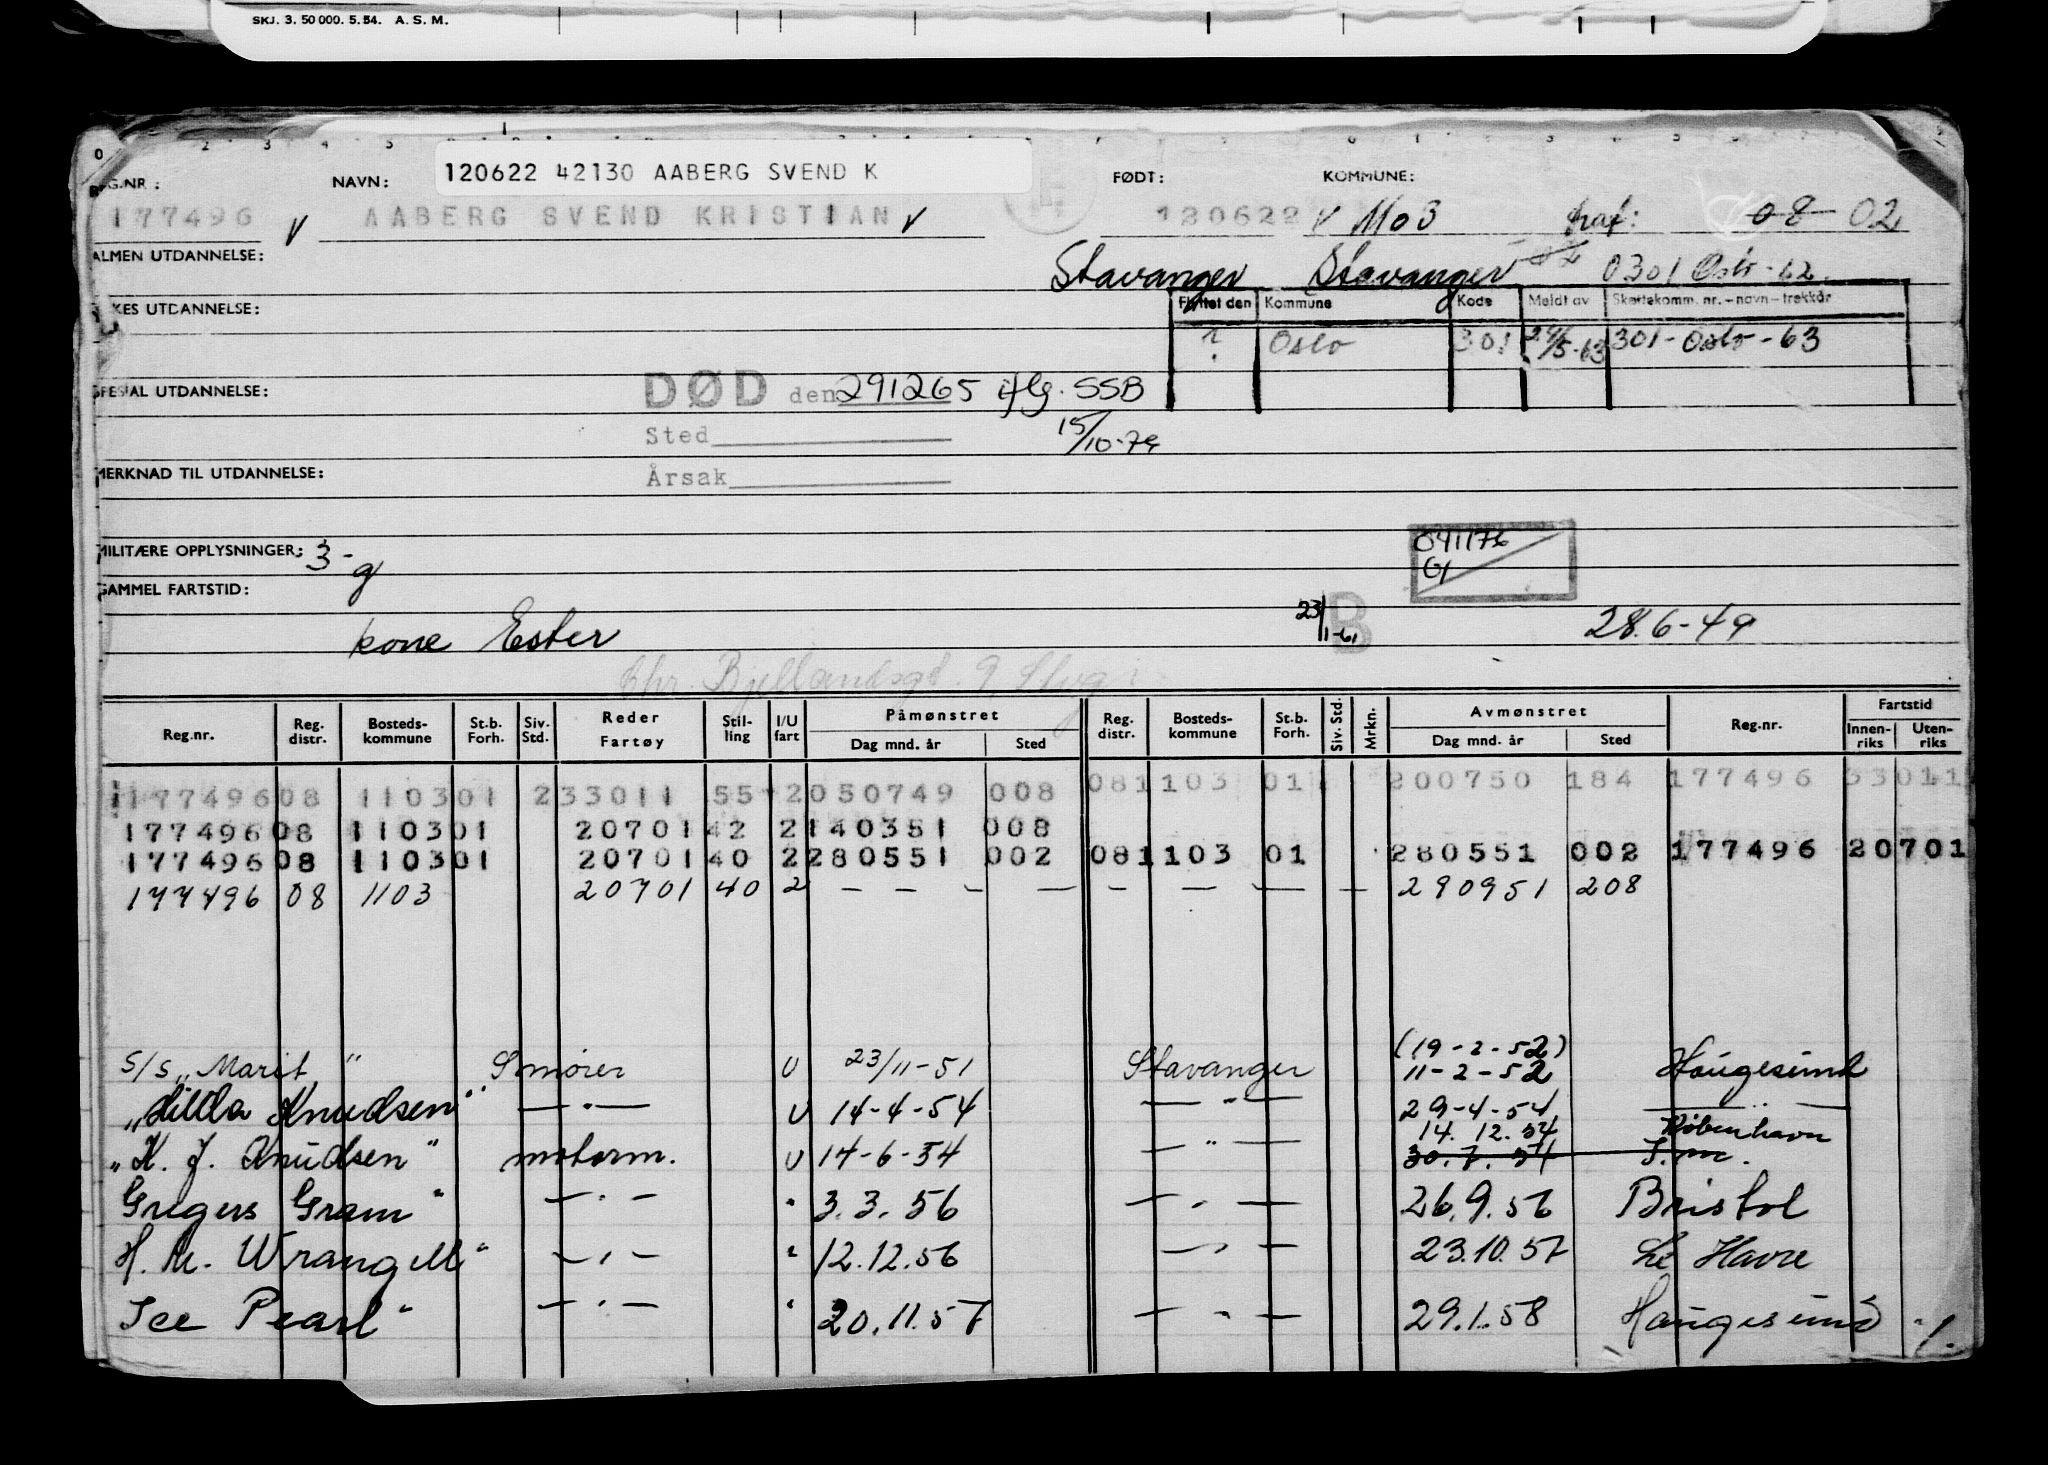 SKJ. 3. 50 000. 5. 54. A. S. M.
REG.NR.: NAVN: 120622 42130 AABERG SVEND K FØDT: KOMMUNE:
177496 V AABERG SVEND KRISTIAN V 120622 V 1103 08 02
ALMEN UTDANNELSE: Stavanger Stavanger 0301 Oslo - 62
Flyttet den Kommune Kode Meldt av Skattekomm. nr. – navn – trekkår
UTDANNELSE: ? Oslo 301 29/5-63 301 - Oslo - 63
SPESIAL UTDANNELSE: DØD den 291265 iflg. SSB
Sted 15/10-74
MERKNAD TIL UTDANNELSE: Årsak
MILITÆRE OPPLYSNINGER: 3-g 041176
GAMMEL FARTSTID: G
kone Ester 23/1-61 B 28.6-49
Chr. Bjellandsgt. 9 Stvg
Reg.nr. Reg. distr. Bosteds- kommune St.b. Forh. Siv. Std. Reder Fartøy Stil- ling I/U fart Påmønstret Dag mnd. år Sted Reg. distr. Bosteds- kommune St.b. Forh. Siv. Std. Mrkn. Avmønstret Dag mnd. år Sted Reg.nr. Fartstid Innen- riks Uten- riks
177496 08 1103 01 2 33011 55 2 050749 008 08 1103 01 200750 184 177496 33011
177496 08 1103 01 20701 42 2 140351 008
177496 08 1103 01 20701 40 2 280551 002 08 1103 01 280551 002 177496 20701
177496 08 1103 20701 40 2 — — — — — — — — 290951 208
S/s "Marit" Smører U 23/11-51 Stavanger (19-2-52) 11-2-52 Haugesund
"Hilda Knudsen" — " — U 14-4-54 — " — 29-4-54 — " —
"K. J. Knudsen" motorm. U 14-6-54 — " — 14.12.54 København
30.7.54 S.m.
Gregers Gram" — " — " 3.3.56 — " — 26.9.56 Bristol
H. M. Wrangell" — " — " 12.12.56 — " — 23.10.57 Le Havre
Ice Pearl" — " — " 20.11.57 — " — 29.1.58 Haugesund ./.